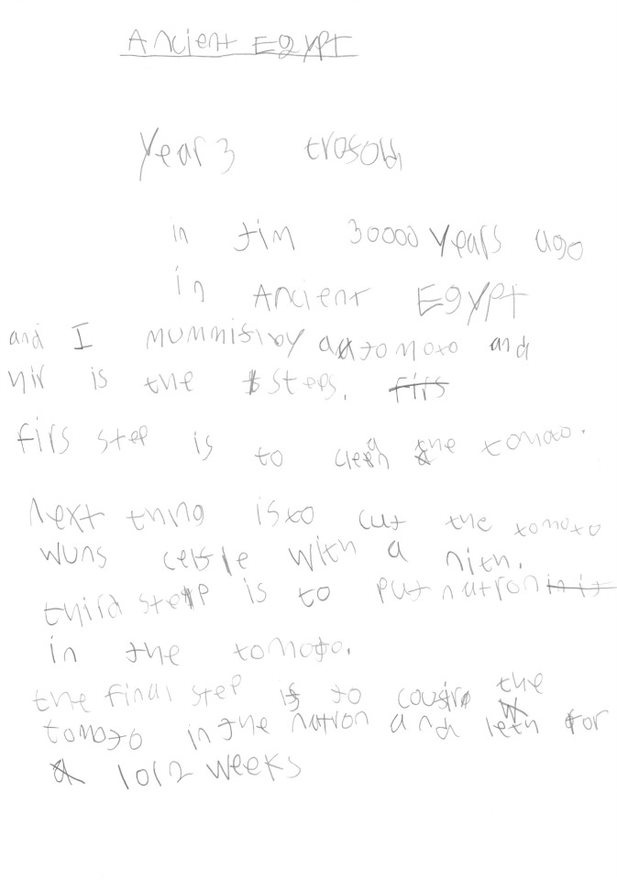 Ancient Egypt
Year 3
in tim 30000 years ago
in Ancient Egypt
and I mummifivy a tomoto and
hir is the steps. firs
firs step is to clean the tomoto.
Next thing is to cut the tomoto
wuns with a nith.
third step is to put natron in it
in the tomoto.
the final step is to the
tomoto in the natron and leth for
a 1012 weeks